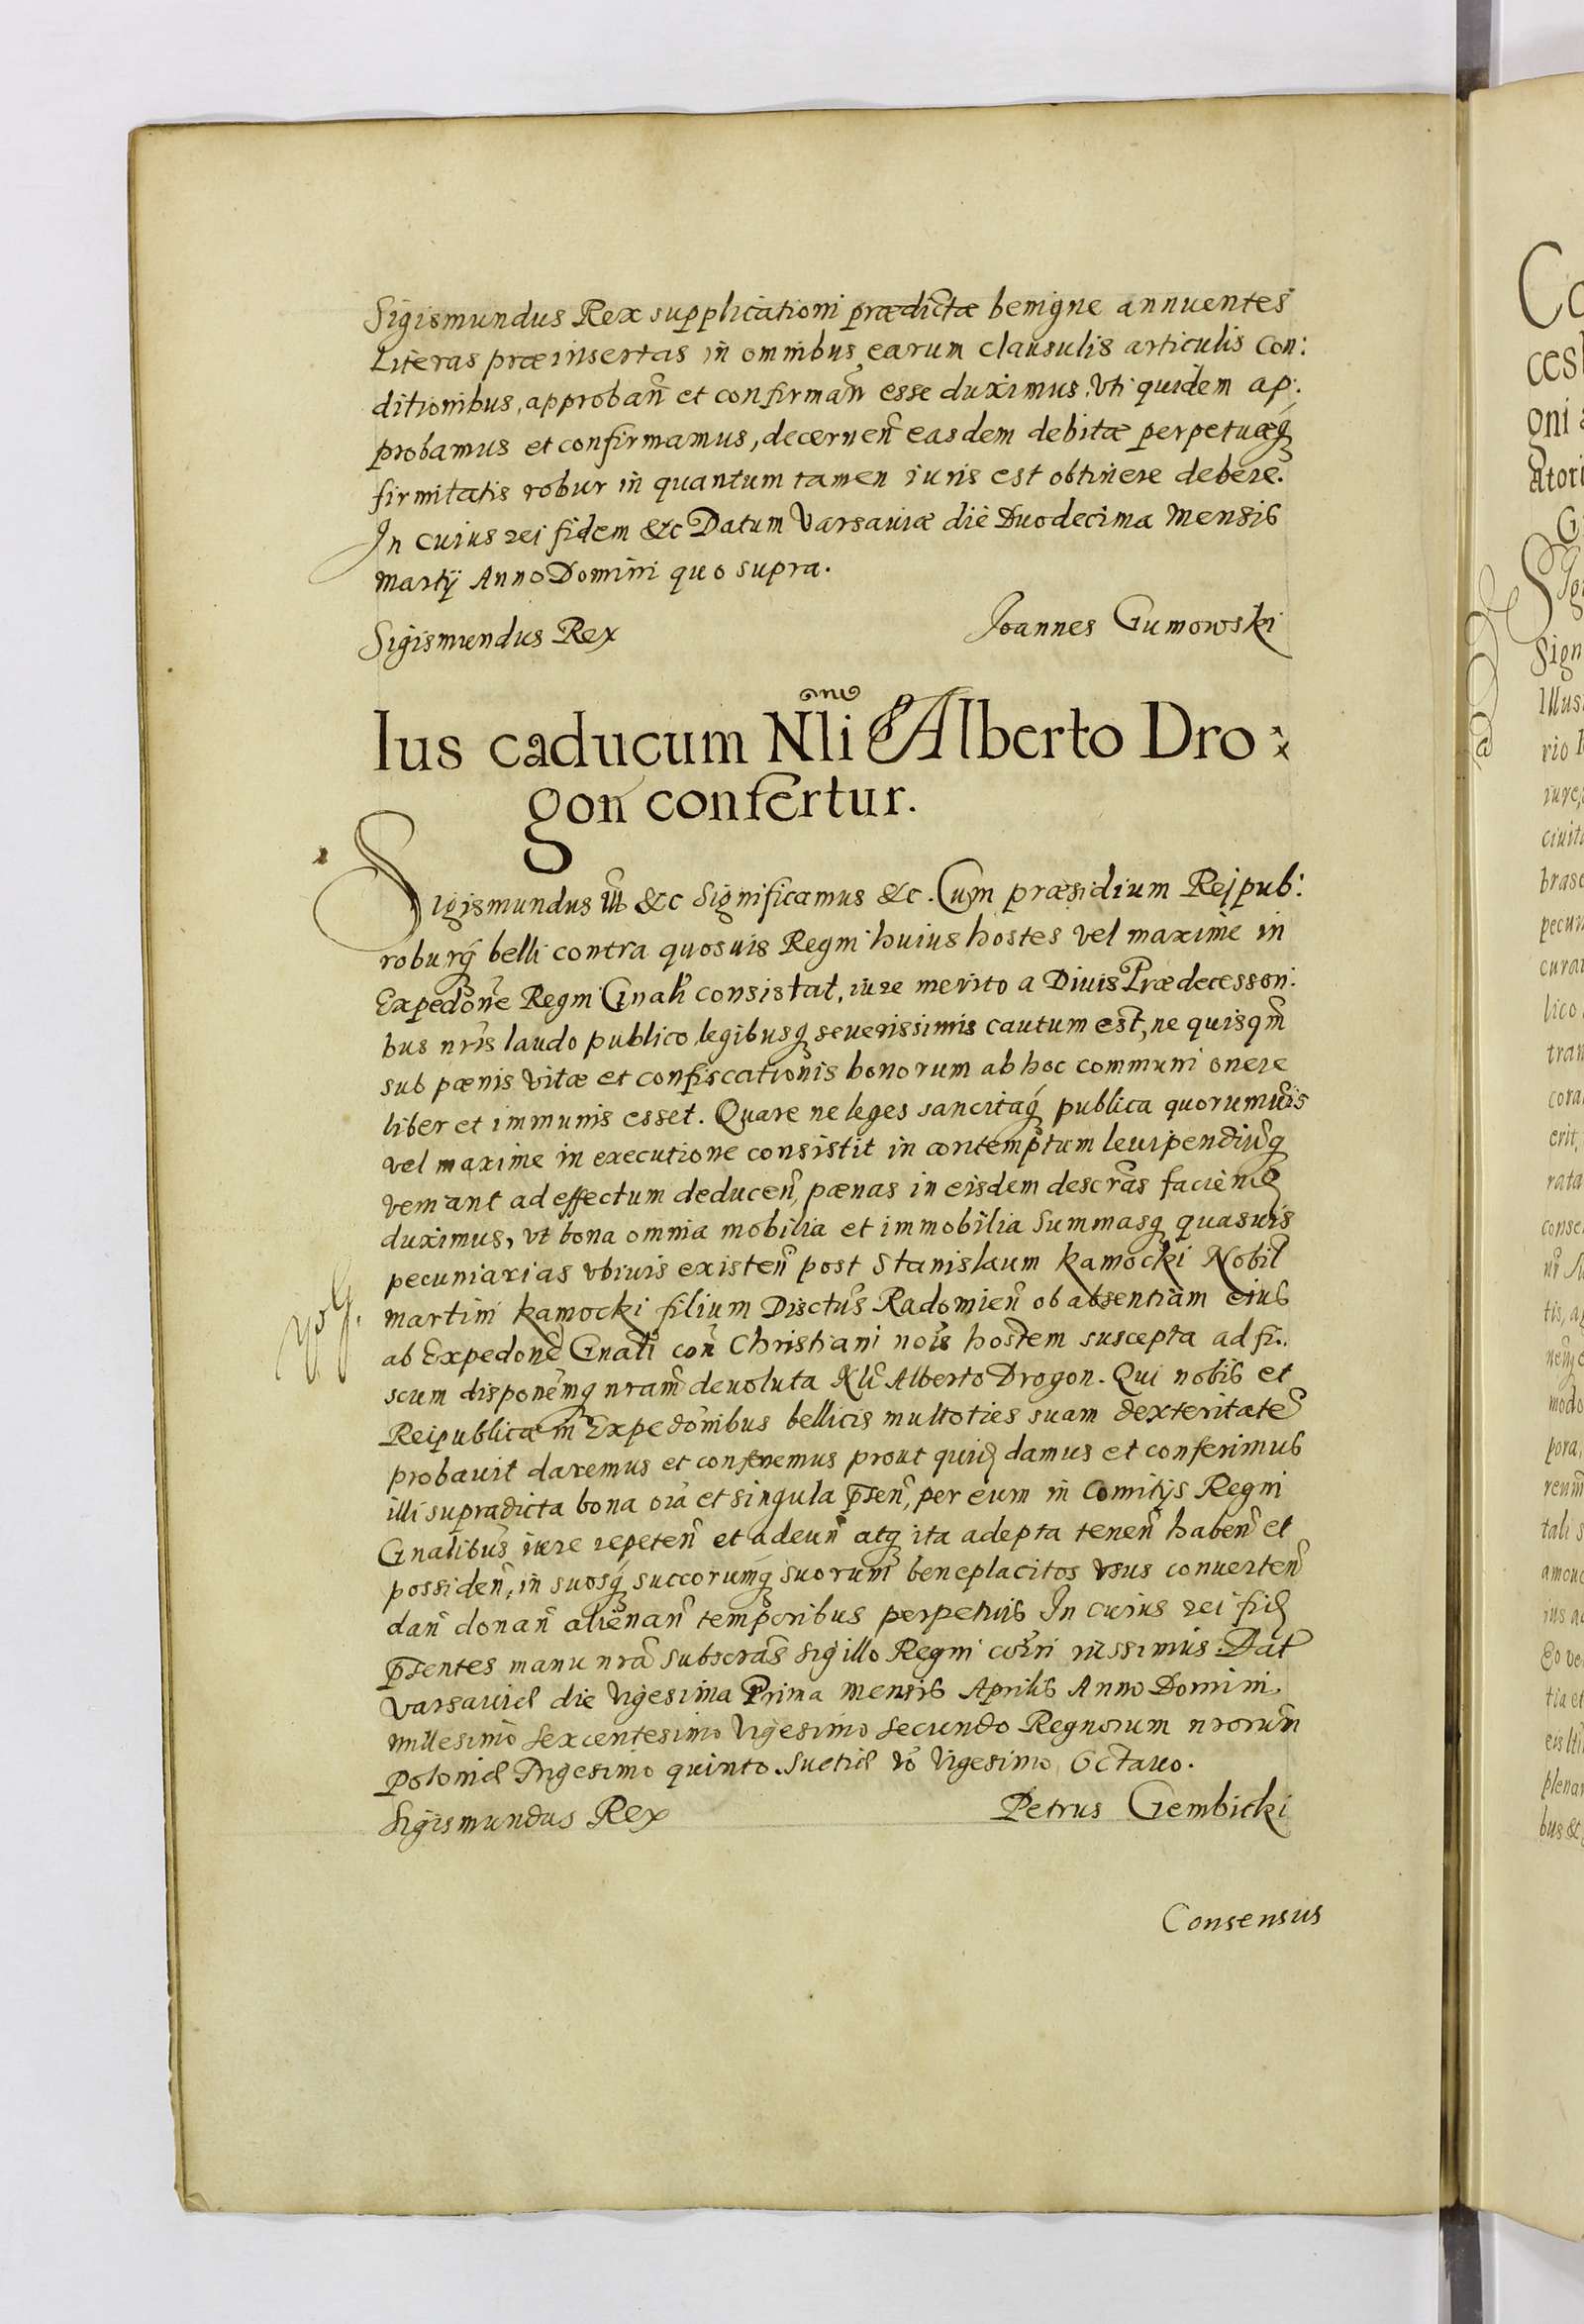 Sigismundus Rex supplicationi prædictæ benigne annuentes
Literas præinsertas in omnibus earum clausulis articulis con:
ditionibus, approbañ et confirmañ esse duximus. Vti quidem ap:
probamus et confirmamus, decerneñ easdem debitæ perpetuæq́
firmitatis robur in quantum tamen iuris est obtinere debere.
In cuius rei fidem &c Datum Varsaviæ die Duodecima Mensis
Martÿ Anno Domini quo supra.
Sigismundus Rex
Joannes Gumowski
Ius caducum Nli Alberto Dro:
gon confertur.
Sigismundus &c Significamus &c. Cum præsidium Reipub:
roburq́ belli contra quosuis Regni huius hostes vel maxime in
Expedõne Regni Gnali consistat, iure merito a Diuis Prædecessori:
bus nris laudo publico legibusq́ seuerissimis cautum est, ne quisqm̃
sub pænis vitæ et confiscationis bonorum ab hoc communi onere
liber et immunis esset. Quare ne leges sancitaq́ publica quorumuis
vel maxime in executione consistit in contemptum leuipendiũq́
veniant ad effectum deduceñ, pænas in eisdem descr̃as facienđ
duximus, vt bona omnia mobilia et immobilia Summasq́ quasuis
pecuniarias vbiuis existeñ post Stanislaum Kamocki Nobil
Martini Kamocki filium Disctus Radomieñ ob absentiam eius
ab Expedone Gnali coñ Christiani nois hostem suscepta ad fi:
scum disponemq́ nram deuoluta Nli Alberto Drogon. Qui nobis et
Reipublicæ in Expedõnibus bellicis multoties suam dexteritatẽ
probauit daremus et conferremus prout quiđ damus et conferimus
illi supradicta bona oia et singula p̃señ, per eum in Comitÿs Regni
Gnalibus iure repeteñ et adeuñ atq́ ita adepta teneñ habeñ et
possideñ, in suosq́ succorumq́ suorum beneplacitos vsus conuerteñ
dañ donañ alienañ temporibus perpetuis In cuius rei fiđ
p̃sentes manu nrã subscr̃as sigillo Regni cõiri iussimus. Dat
Varsauiæ die Vigesima Prima Mensis Aprilis Anno Domini
Millesimo Sexcentesimo Vigesimo Secundo Regnorum nrorum
Poloniæ Trigesimo quinto. Suetiæ vo Vigesimo Octauo.
Sigismundus Rex
Petrus Gembicki
Consensus